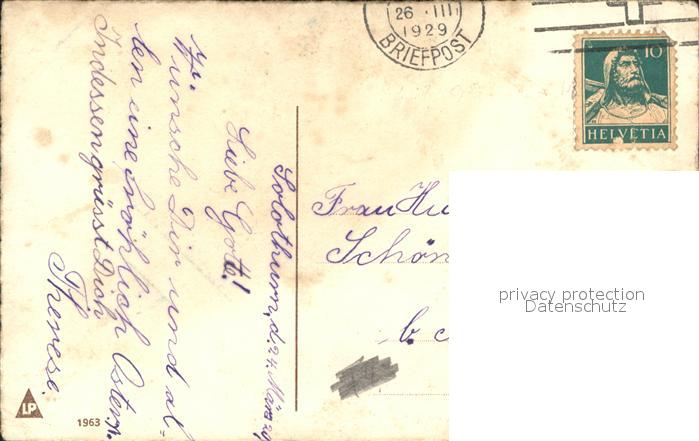 26 . III
1929
BRIEFPOST
10
HELVETIA
Solothurn, d. 24. März 29
Liebe Gotte!
Wünsche Dir und al-
len eine fröhlich Ostern.
Indessen grüsst Dich
Therese.
Frau
Schön
b.
privacy protection
Datenschutz
LP
1963